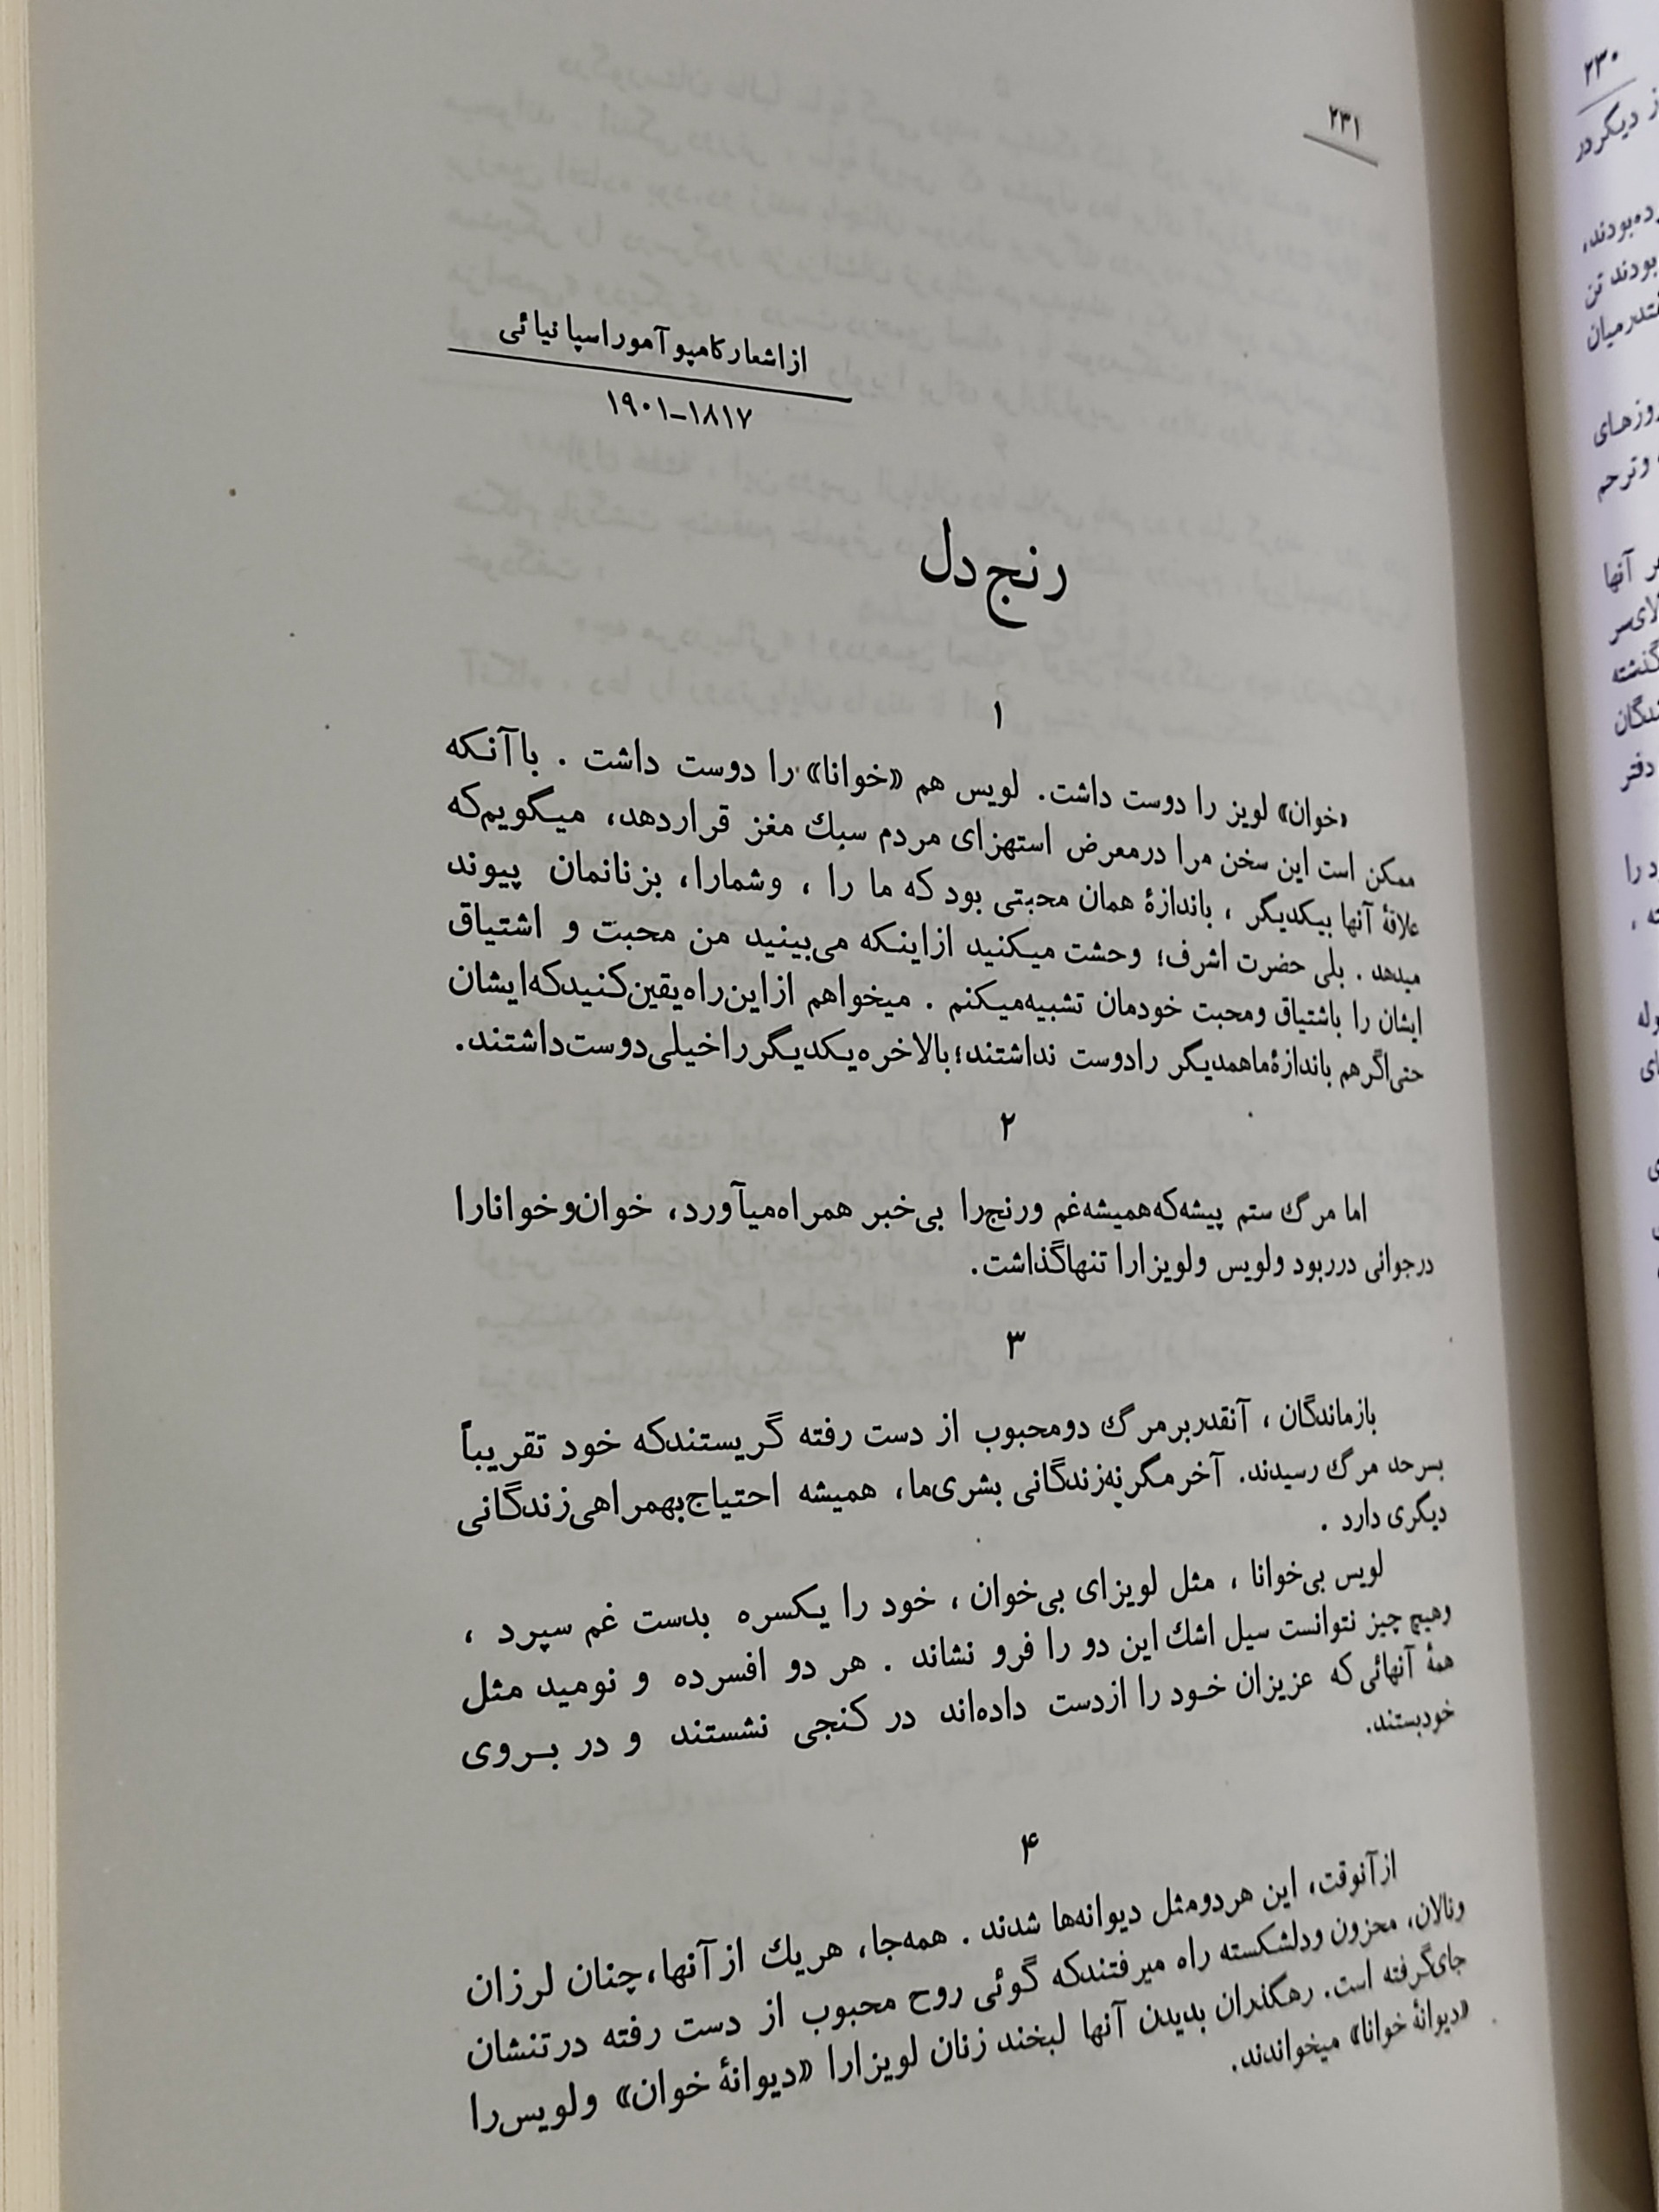 ۲۳۱
از اشعار کامپو آمور اسپانیائی
۱۸۱۷-۱۹۰۱
رنج دل
۱
«خوان» لویز را دوست داشت. لویس هم «خوانا» را دوست داشت . با آنکه
ممکن است این سخن مرا درمعرض استهزای مردم سبك مغز قرار دهد، میگویم که
علاقهٔ آنها بیکدیگر ، باندازهٔ همان محبتی بود که ما را ، وشمارا، بزنانمان پیوند
میدهد . بلی حضرت اشرف؛ وحشت میکنید از اینکه می‌بینید من محبت و اشتیاق
ایشان را باشتیاق ومحبت خودمان تشبیه میکنم . میخواهم از این راه یقین کنید که ایشان
حتی اگر هم باندازهٔ ما همدیگر را دوست نداشتند؛ بالاخره یکدیگر را خیلی دوست داشتند.
۲
اما مرگ ستم پیشه که همیشه غم ورنج را بی‌خبر همراه میآورد، خوان و خوانا را
درجوانی درربود ولویس ولویزا را تنها گذاشت.
۳
بازماندگان ، آنقدر بر مرگ دو محبوب از دست رفته گریستند که خود تقریباً
بسرحد مرگ رسیدند. آخر مگر نه زندگانی بشری ما، همیشه احتیاج بهمراهی زندگانی
دیگری دارد .
لویس بی‌خوانا ، مثل لویزای بی‌خوان ، خود را یکسره بدست غم سپرد ،
وهیچ چیز نتوانست سیل اشك این دو را فرو نشاند . هر دو افسرده و نومید مثل
همهٔ آنهائی که عزیزان خود را ازدست داده‌اند در کنجی نشستند و در بروی
خودبستند.
۴
از آنوقت، این هردو مثل دیوانه‌ها شدند . همه‌جا، هریك از آنها، چنان لرزان
ونالان، محزون ودلشکسته راه میرفتند که گوئی روح محبوب از دست رفته در تنشان
جای گرفته است. رهگذران بدیدن آنها لبخند زنان لویزا را «دیوانهٔ خوان» ولویس را
«دیوانهٔ خوانا» میخواندند.
۲۳۰
دیگر در
بودند تن
روزهای
وترحم
آنها
گذشته
دفتر